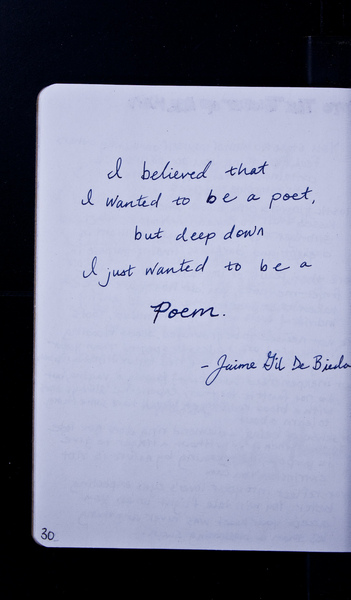 I believed that
I wanted to be a poet,
but deep down
I just wanted to be a
Poem.
- Jaime Gil De Bieda
30